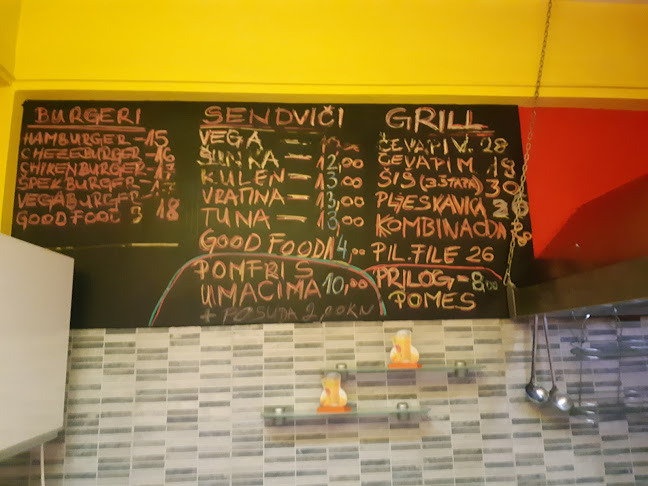 BURGERI
HAMBURGER-15
CHEZEBURGER-16
CHIKENBURGER-17
SPEK BURGER-17
VEGABURGER-
GOOD FOOD 18
SENDVIČI
VEGA —
ŠUNKA — 12,00
KULEN — 13,00
VRATINA — 13,00
TUNA — 13,00
GOOD FOOD 14,00
POMFRI S
UMACIMA 10,00
+ POSUDA 2,00KN
GRILL
ČEVAPI V. 28
ČEVAPI M 18
ŠIŠ (3 ŠTAPA) 30
PLJESKAVICA
KOMBINACIJA
PIL. FILE 26
PRILOG-8,00
POMES